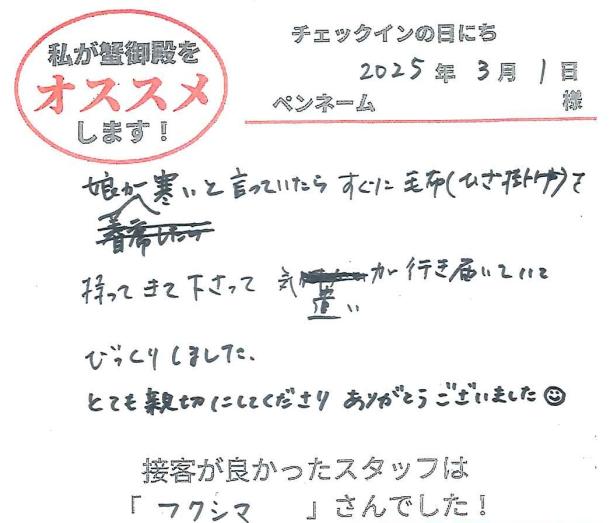 私が蟹御殿を
オススメ
します！
チェックインの日にち
2025年 3月 1日
ペンネーム 様
娘が寒いと言っていたら すぐに毛布(ひざ掛け)を
着席した
持ってきて下さって 気遣いが行き届いていて
びっくりしました。
とても親切にしてくださり ありがとうございました☺
接客が良かったスタッフは
「 フクシマ 」さんでした！